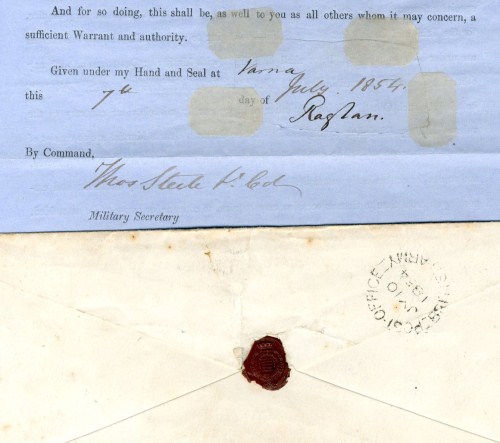 And for so doing, this shall be, as well to you as all others whom it may concern, a
sufficient Warrant and authority.
Given under my Hand and Seal at Varna
this 7th day of July 1854.
Raglan.
By Command,
Thos Steele Lt Col
Military Secretary
POST-OFFICE BRITISH ARMY
JY 10
1854